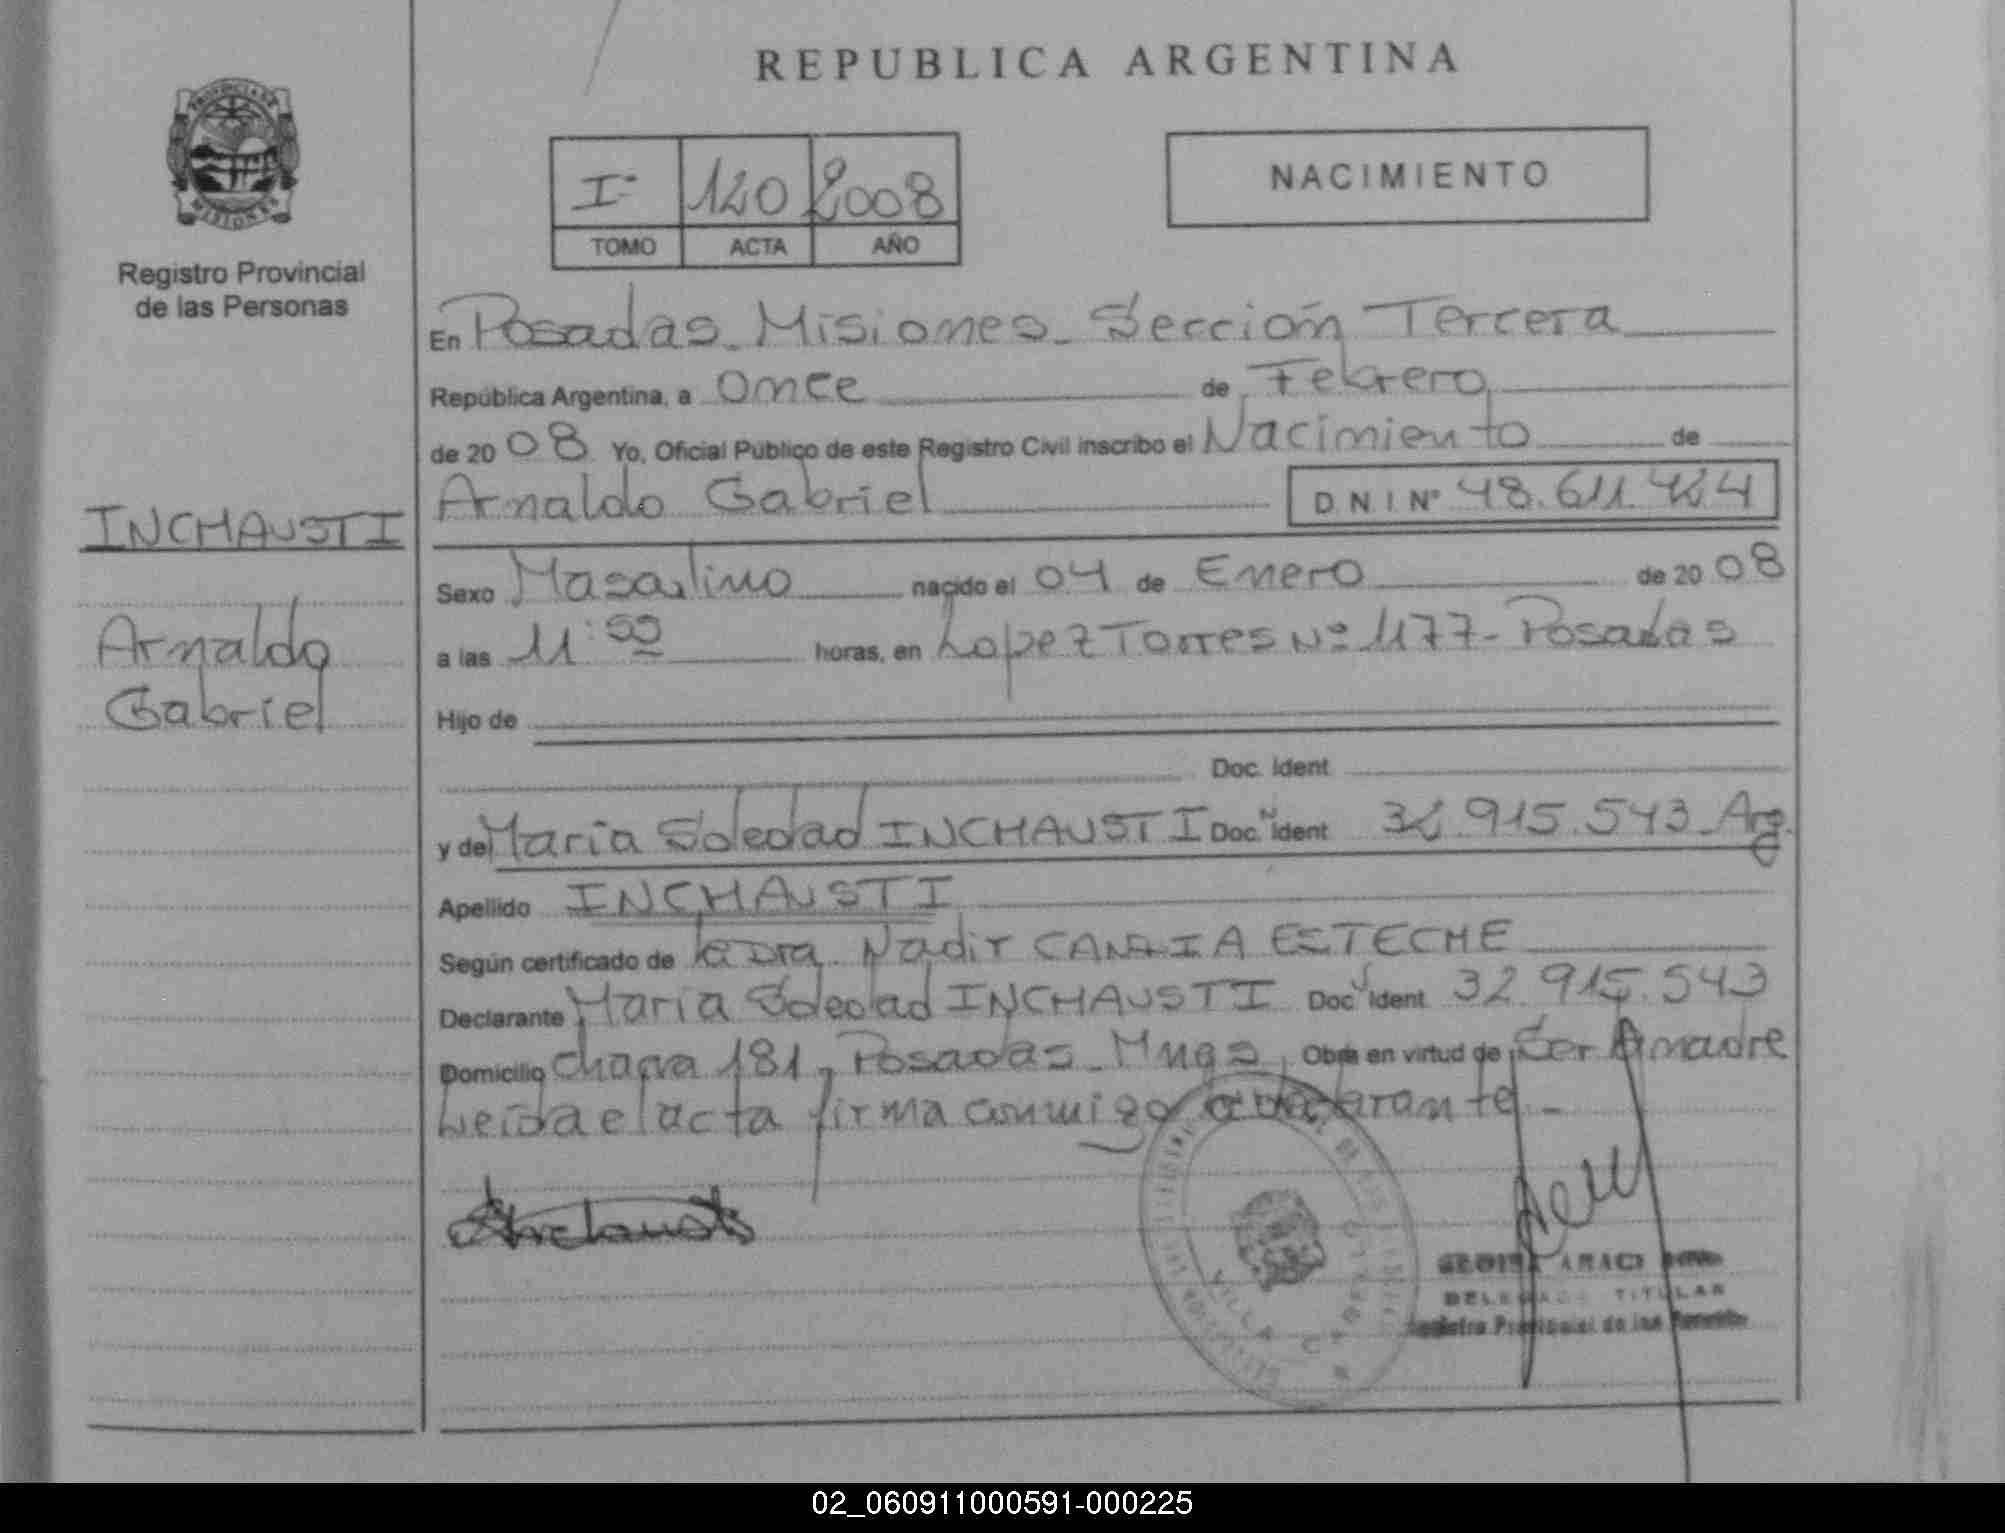 REPUBLICA ARGENTINA
PROVINCIA DE
MISIONES
Registro Provincial
de las Personas
Iº 120 2008
TOMO ACTA AÑO
NACIMIENTO
En Posadas - Misiones - Sección Tercera
República Argentina, a Once de Febrero
de 2008 Yo, Oficial Público de este Registro Civil inscribo el Nacimiento de
Arnaldo Gabriel D.N.I. Nº 48.611.424
INCHAUSTI
Arnaldo
Gabriel
Sexo Masculino nacido el 04 de Enero de 2008
a las 11:55 horas, en Lopez Torres Nº 1177 - Posadas
Hijo de
Doc. Ident
y de Maria Soledad INCHAUSTI Doc. Ident 32.915.543 Arg.
Apellido INCHAUSTI
Según certificado de la Dra. Nadir ESTECHE
Declarante Maria Soledad INCHAUSTI Doc Ident 32.915.543
Domicilio chacra 181, Posadas - Mnes, Obra en virtud de Ser madre
Leída el acta firma conmigo declarante -
VILLA CABELLO
DELEGADO TITULAR
Registro Provincial de las Personas
02_060911000591-000225